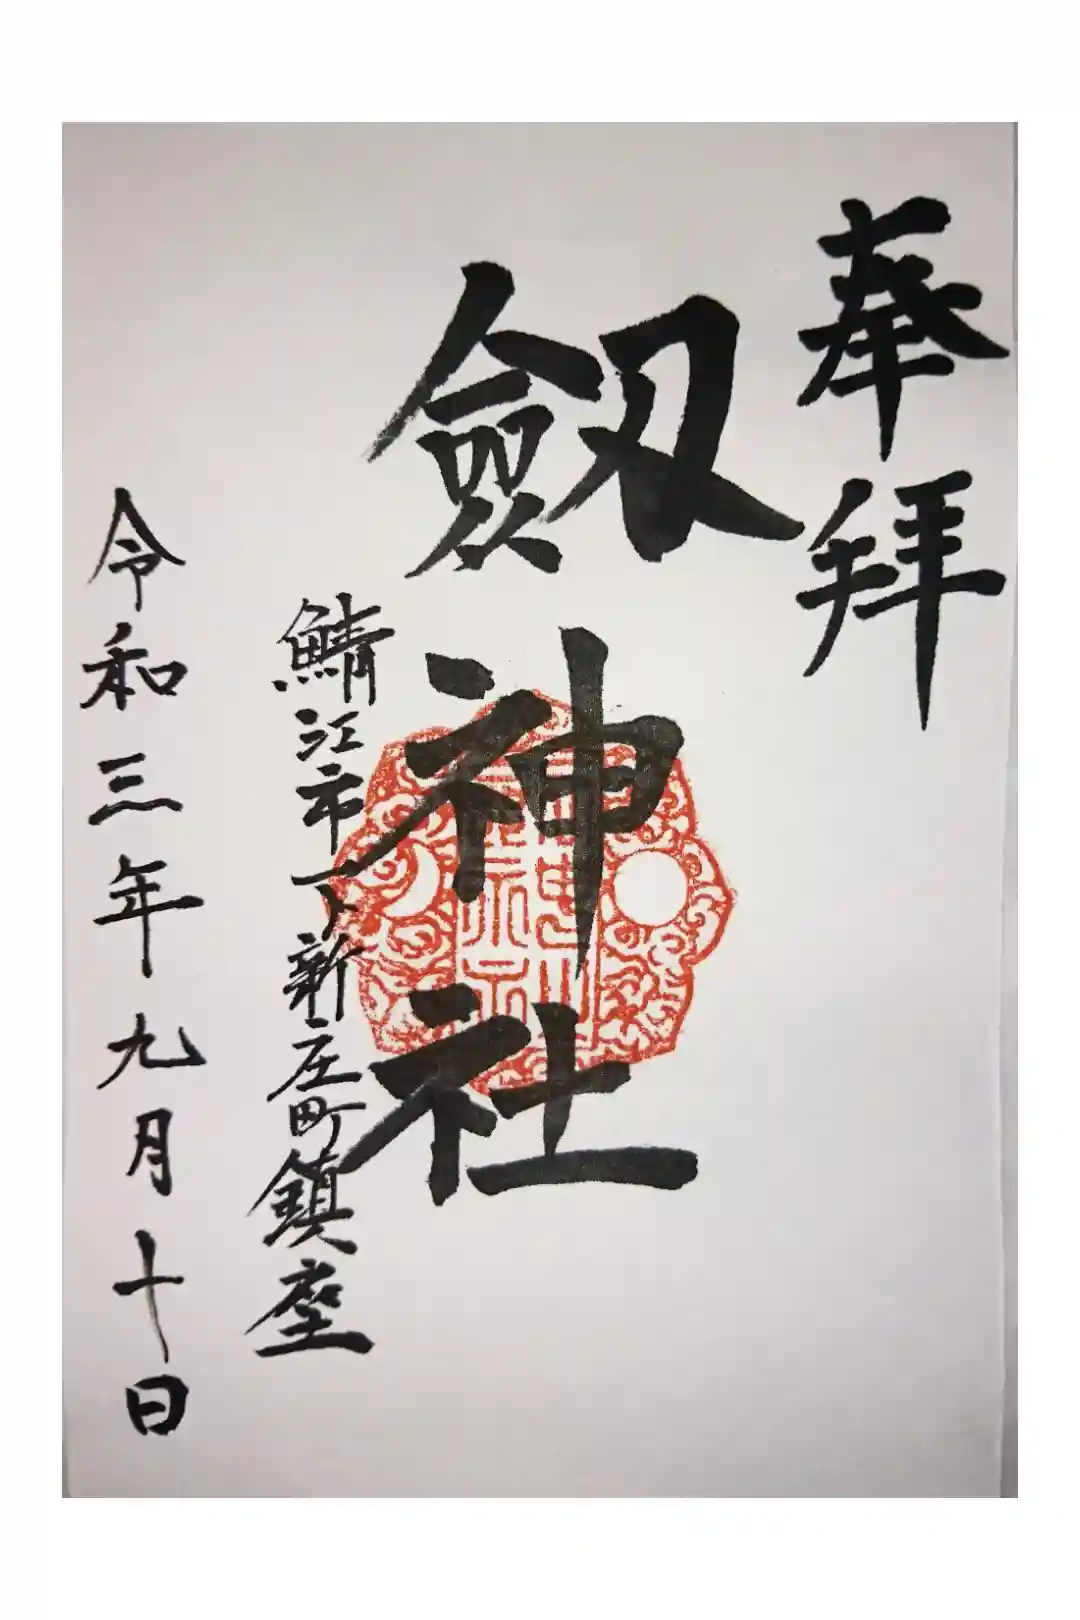 奉拝
劔神社
鯖江市下新庄町鎮座
令和三年九月十日